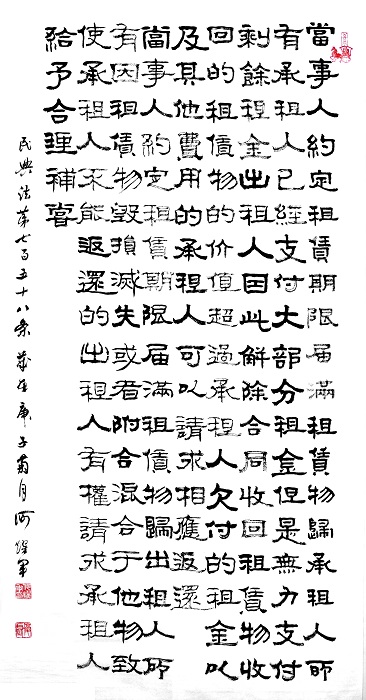 當事人約定租賃期限届滿租賃物歸承租人所
有承租人已經支付大部分租金但是無力支付
剩餘租金出租人因此解除合同收回租賃物收
回的租賃物的价值超過承租人欠付的租金以
及其他費用的承租人可以請求相應返還
當事人約定租賃期限届滿租賃物歸出租人所
有因租賃物毀損滅失或者附合混合于他物致
使承租人不能返還的出租人有權請求承租人
給予合理補
民典法第七百五十八条 歲在庚子菊月 軍